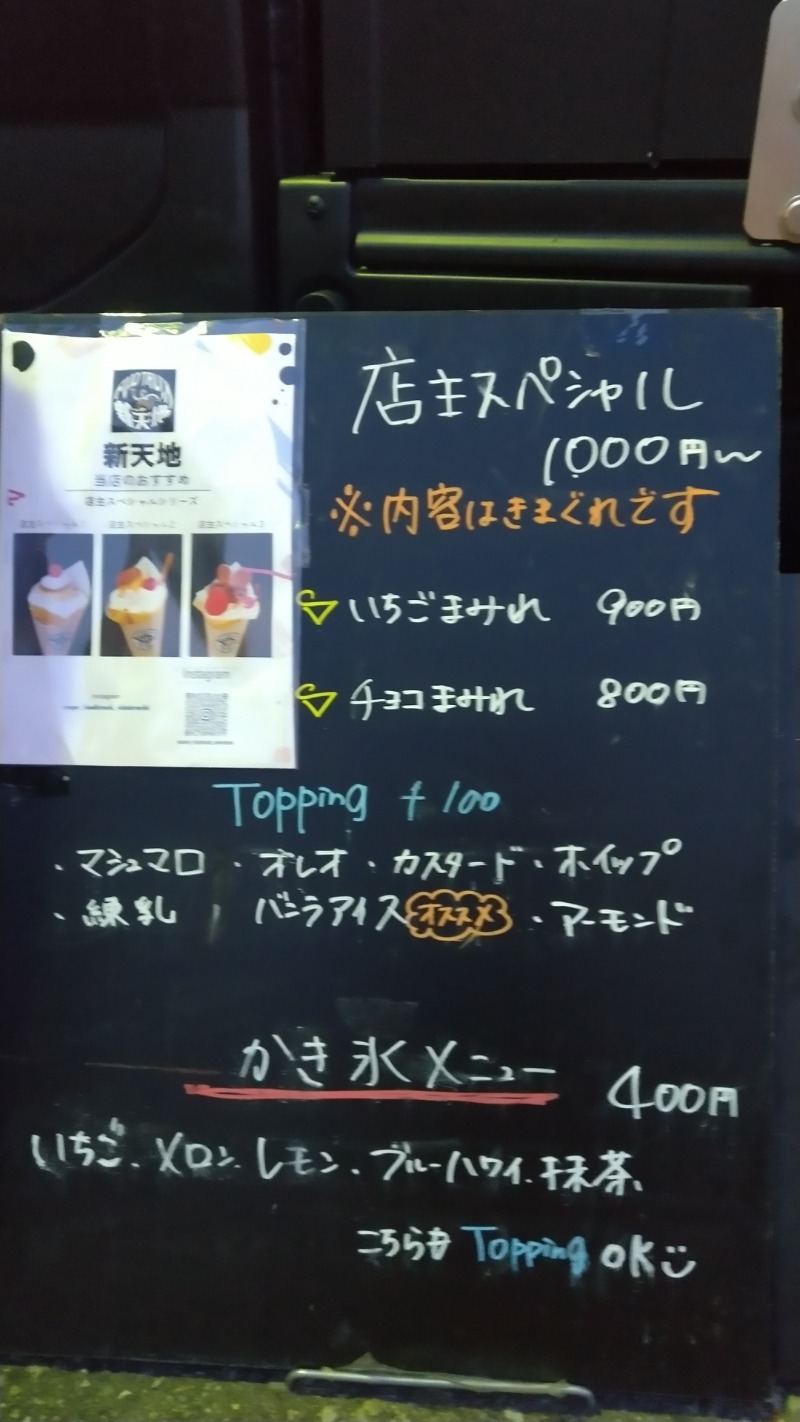 新天地
当店のおすすめ
店主スペシャルシリーズ
店主スペシャル1 店主スペシャル2 店主スペシャル3
Instagram
店主スペシャル
1000円〜
※内容はきまぐれです
いちごまみれ 900円
チョコまみれ 800円
Topping +100
・マシュマロ・オレオ・カスタード・ホイップ
・練乳 バニラアイス オススメ ・アーモンド
かき氷メニュー 400円
いちご、メロン、レモン、ブルーハワイ、抹茶、
こちらも Topping OK